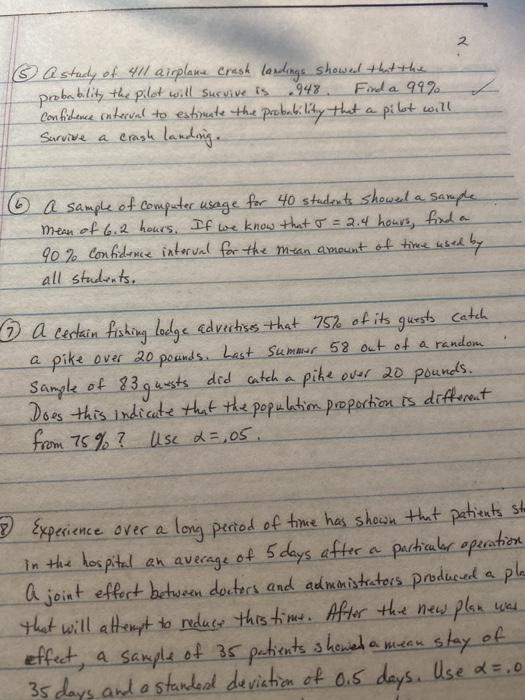 2
⑤ A study of 411 airplane crash landings showed that the
probability the pilot will survive is .948. Find a 99%
Confidence interval to estimate the probability that a pilot will
Survive a crash landing.
⑥ A sample of computer usage for 40 students showed a sample
mean of 6.2 hours. If we know that σ = 2.4 hours, find a
90% Confidence interval for the mean amount of time used by
all students.
⑦ A certain fishing lodge advertises that 75% of its guests catch
a pike over 20 pounds. Last Summer 58 out of a random
Sample of 83 guests did catch a pike over 20 pounds.
Does this indicate that the population proportion is different
from 75%? Use α=.05.
⑧ Experience over a long period of time has shown that patients st
in the hospital an average of 5 days after a particular operation
A joint effort between doctors and administrators produced a pla
that will attempt to reduce this time. After the new plan was
effect, a sample of 35 patients showed a mean stay of
35 days and a standard deviation of 0.5 days. Use α=.0